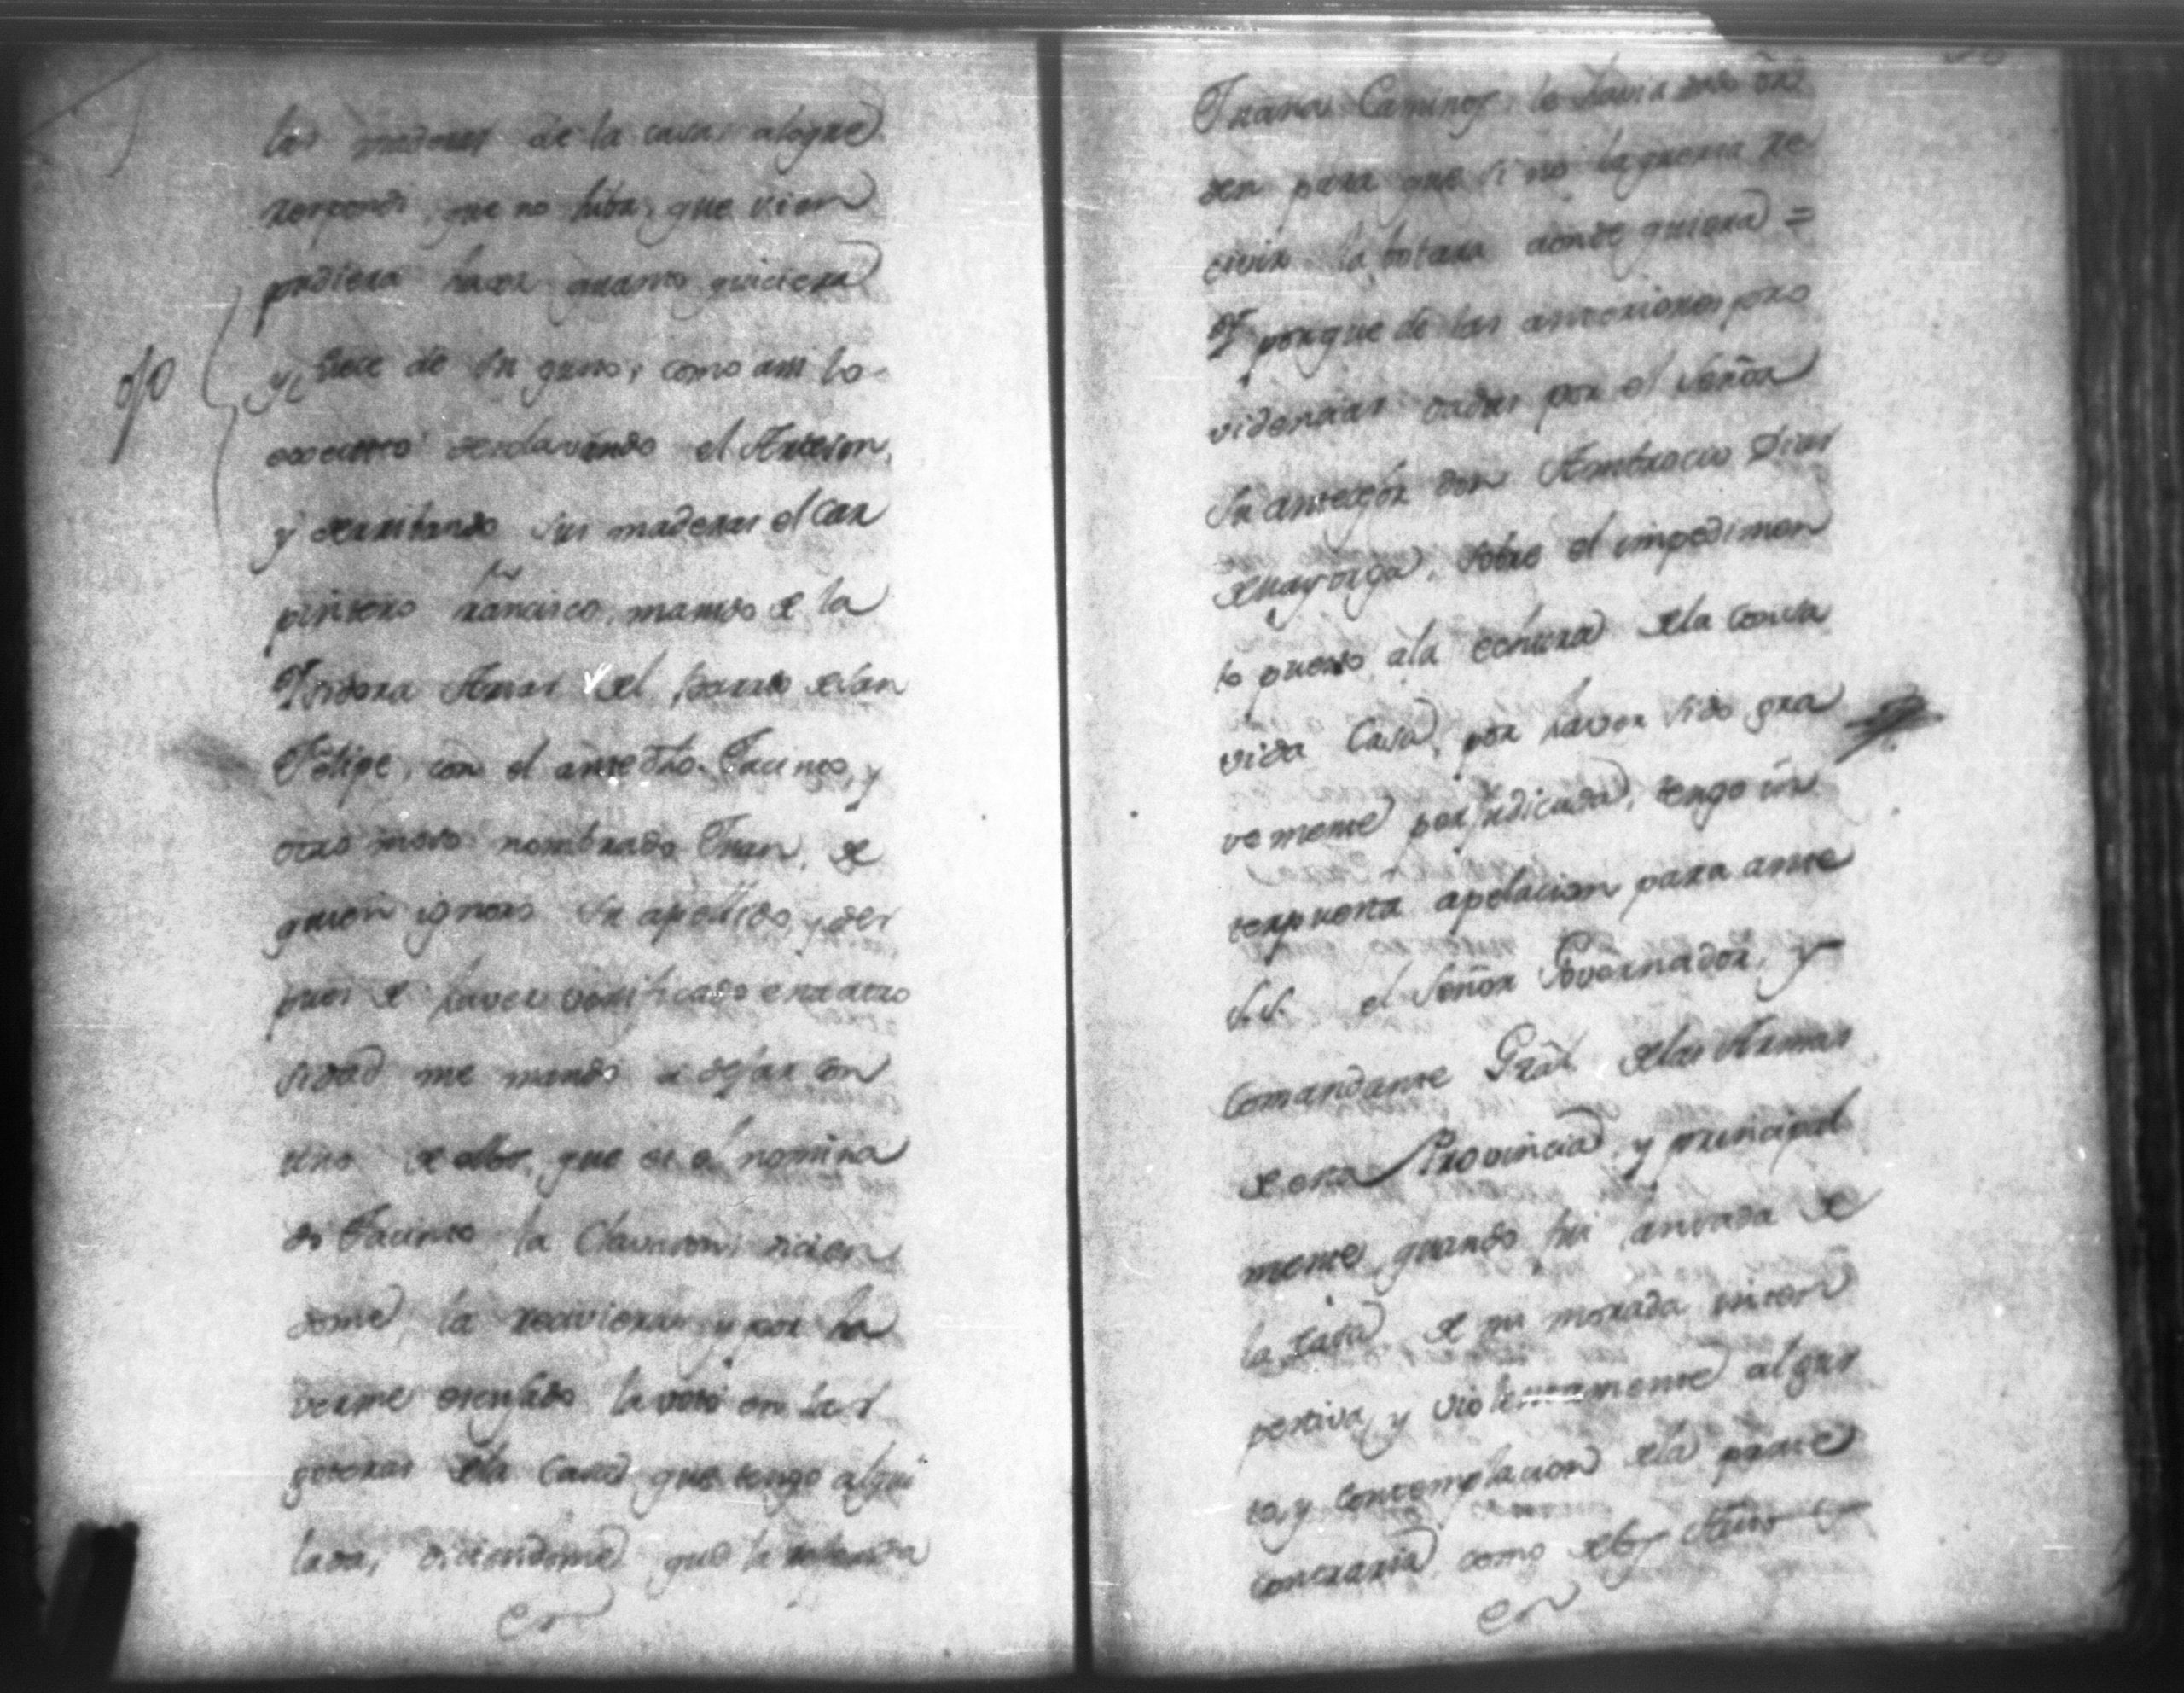 las maderas de la casa, aloque
respondi, que no hiba, que vien
pudiera hacer quanto quiciera
y fuece de su gusto, como assi lo
executo desclavando el Arteson,
y derribando sus maderas el Car
pintero Francisco, marido de la
Isidora Arias del barrio de San
Felipe, con el antedho. Jacinto, y
otro moso nombrado Juan, de
quien ignoro su apellido, y des
pues de haver verificado en
sidad me mando a dejar con
uno de ellos, que es el nomina
do Jacinto la Clavason, dicien
dome la reciviera, y por ha
verme escusado la votó en las
goteras de la Casa que tengo alqui
lada, diciendome que la
en
Juana Caminos le havia dado or
den para que si no la queria re
civir la botara donde quiera =
Y porque de las anteriores pro
videncias dadas por el Señor
su antesesor don Ambrocio Dias
de mayorga, sobre el impedimen
to puesto ala echura de la
vida Casa, por haver sido gra
vemente perjudicada, tengo in
terpuesta apelacion para ante
S.S. el Señor Governador, y
Comandante Gral. de las Armas
de esta Provincia, y principal
mente quando fui lansada de
la Casa de mi morada intem
pestiva, y violentamente al gus
to, y contemplacion de la parte
contraria como de los Autos
en